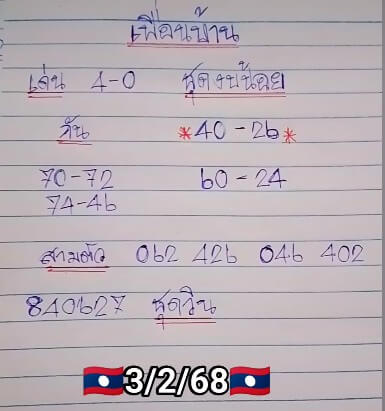 เพื่อนบ้าน
เล่น 4-0 ชุดงบน้อย
กัน *40-26*
70-72 60-24
74-46
สามตัว 062 426 046 402
840627 ชุดวิน
3/2/68